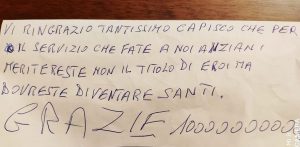 VI RINGRAZIO TANTISSIMO CAPISCO CHE PER
IL SERVIZIO CHE FATE A NOI ANZIANI
MERITERESTE NON IL TITOLO DI EROI MA
DOVRESTE DIVENTARE SANTI.
GRAZIE 1000000000